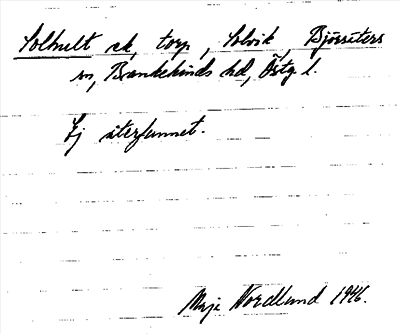 Solhult ek, torp, Solvik, Björsäters
sn, Bankekinds hd, Östg l.
Ej återfunnet.
Maja Nordlund 1946.